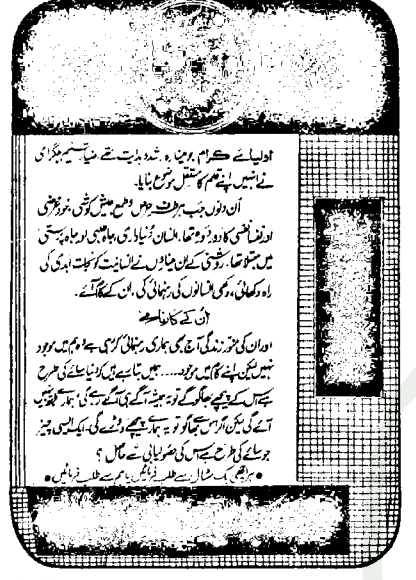 اولیائے کرام جو مینارہ رشد و ہدایت تھے ضیا تسنیم بلگرامی
نے انہیں اپنے قلم کا مستقل موضوع بنایا۔
اُن دنوں جب ہر طرف حرص و طمع عیش کوشی، خودغرضی
اور نفسا نفسی کا دور دورہ تھا، انسان دُنیاداری، جاہ طلبی اور جاہ پرستی
میں مبتلا تھا۔ روشنی کے ان میناروں نے انسانیت کو نجات ابدی کی
راہ دکھائی، دکھی انسانوں کی رہنمائی کی، ان کے کام آئے۔
اُن کے کارنامے
اور ان کی طرز زندگی آج بھی ہماری رہنمائی کر رہی ہے وہ ہم میں موجود
نہیں لیکن اپنے کام میں موجود..... ہمیں بتا رہے ہیں کہ دُنیا سائے کی طرح
ہے اس کے پیچھے بھاگو گے تو یہ ہمیشہ آگے ہی آگے رہے گی، ہمارے ہاتھ نہیں
آئے گی لیکن اگر اس سے بھاگو تو یہ ہمارے پیچھے دوڑے گی۔ ایک ایسی چیز
جو سائے کی طرح ہے اس کی حصولیابی سے حاصل؟
• ہر اچھے بک سٹال سے طلب فرمائیں یا ہم سے طلب فرمائیں •